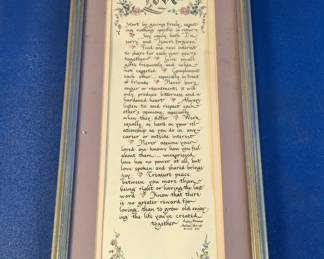 Love
Start by giving freely, expect-
ing nothing specific in return
Say again both I'm
sorry and you're forgiven
Find one new interest
to share for each year you're
together Give small
gifts frequently and when
not expected Compliment
each other... especially in front
of friends Never bury
anger or resentment; it will
only produce bitterness and a
hardened heart Always
listen to and respect each
other's opinions, especially
when they differ Work
equally as hard on your rel-
ationship as you do on any
career or outside interest
Never assume your
loved one knows how you feel
about them... unexpressed
love has no power at all, but
love spoken and shared brings
joy Treasure peace
between you more than
being right or having the last
word Know that there
is no greater reward for
loving, than to grow old enjoy-
ing the life you've created
together